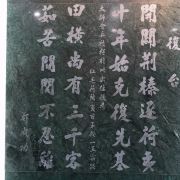 復台
開闢荊榛逐荷夷
十年始克復先基
田橫尚有三千客
茹苦間關不忍離
鄭成功